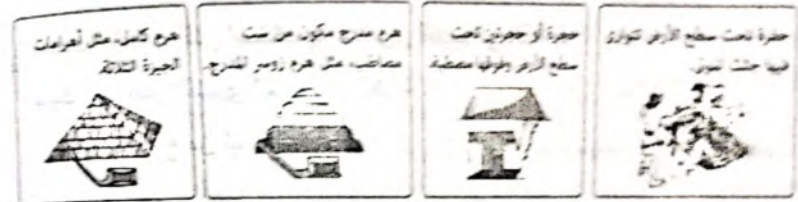 حفرة تحت سطح الأرض تتوارى
فيها جثث الموتى.
حجرة أو حجرتين تحت
سطح الأرض وفوقها مصطبة.
هرم مدرج مكون من ست
مصاطب، مثل هرم زوسر المدرج.
هرم كامل، مثل أهرامات
الجيزة الثلاثة.